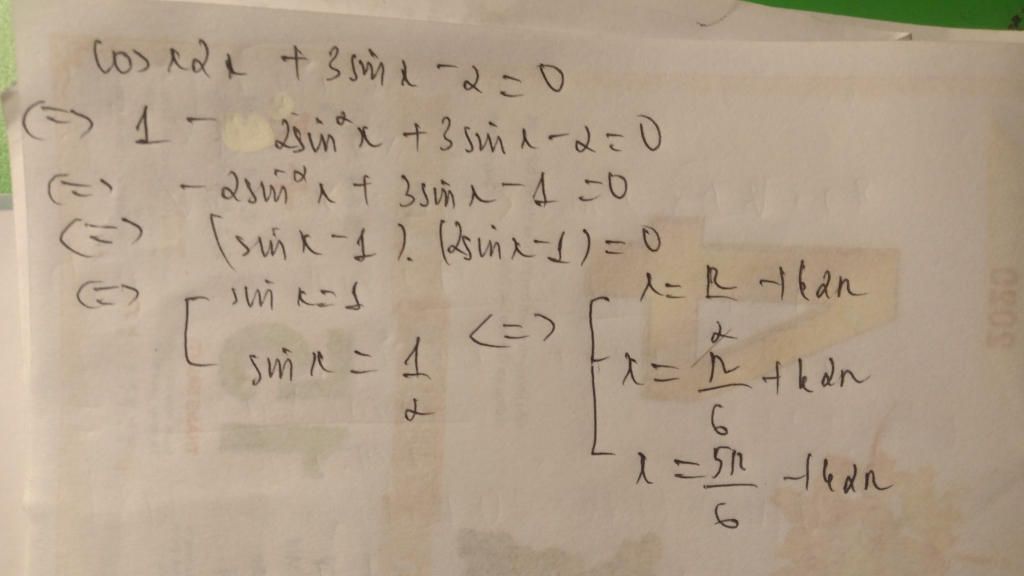 cos x2x + 3sin x - 2 = 0
(=) 1 - 2sin²x + 3sin x - 2 = 0
(=) - 2sin²x + 3sin x - 1 = 0
(=) (sin x - 1). (2sin x - 1) = 0
(=) [ sin x = 1
sin x = 1/2
<=> [ x = π/2 + k2π
x = π/6 + k2π
x = 5π/6 + k2π